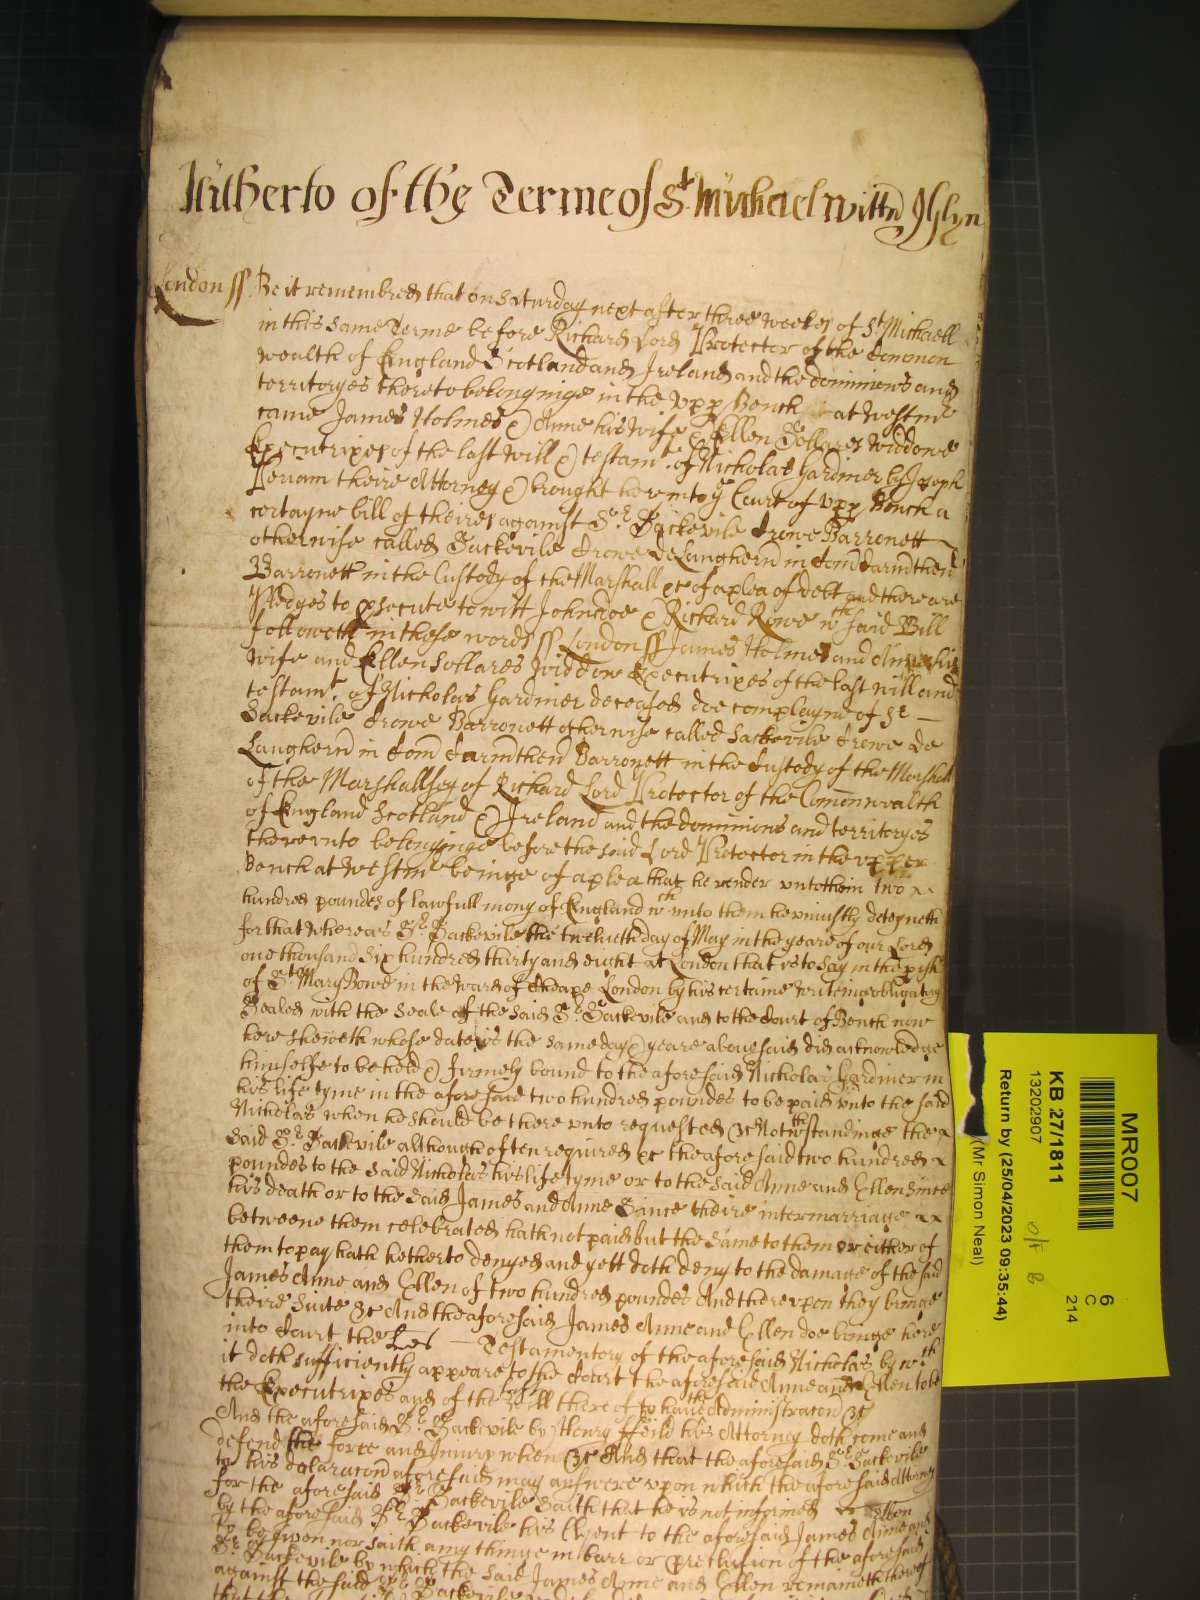 Hitherto of the Terme of St Michael wittn Jslyn
London ss Be it remembred that on Saturday next after three weekes of St Michaell
in this same Terme before Richard Lord Protector of the Common
wealth of England Scotland and Ireland and the dominions and
territoryes thereto belonginge in the vpp Bench at Westmr
came James Holmes & Anne his wife & Ellen Sollares Widdowe
Executrixes of the last will & testamt of Nicholas Gardiner by Joseph
Periam theire Attorney & brought here into ye Court of vpp Bench a
certayne bill of theires against Sr Sackevile Crowe Barronett
otherwise called Sackevile Crowe de Laugherñ in Com Carmthen
Barronett in the Custody of the Marshall &c of a plea of debt and there are
Pledges to psecute to witt John doe & Richard Rowe wch said Bill
followeth in these words ss London ss James Holmes and Anne his
wife and Ellen Sollares Widdow Executrixes of the last will and
testamt of Nicholas Gardiner deceased doe complayne of Sr
Sackevile Crowe Barronett otherwise called Sackevile Crowe de
Laugherñ in Com Carmthen Barronett in the Custody of the Marshall
of the Marshallsey of Richard Lord Protector of the Comonwealth
of England Scotland & Ireland and the dominions and territoryes
therevnto belonginge before the said Lord Protector in the vpper
Bench at Westmr beinge of a plea that he render vnto them two
hundred poundes of lawfull mony of England wch vnto them he viniustly deteyneth
for that whereas Sr Sackevile the twelueth day of May in the yeare of our Lord
one thousand Six hundred thirty and eight at London that is to say in the pish
of St Mary Bowe in the Ward of Cheape London by his certaine writeinge obligatory
Sealed with the Seale of the said Sr Sackevile and to the Court of Bench now
here sheweth whose date is the same day & yeare abouesaid did acknowledge
himselfe to be held & firmely bound to the aforesaid Nicholas Gardiner in
his life tyme in the aforesaid two hundred poundes to be paid vnto the said
Nicholas when he should be there vnto requested &c Notwthstandinge the
said Sr Sackvile although often required &c the aforesaid two hundred
poundes to the said Nicholas his life tyme or to the said Anne and Ellen since
his death or to the said James and Anne Since theire intermarriage
betweene them celebrated hath not paid but the same to them or either of
them to pay hath hetherto denyed and yett doth deny to the damage of the said
James Anne and Ellen of two hundred poundes And therevpon they bringe
theire Suite &c And the aforesaid James Anne and Ellen doe bringe here
into Court the Lres Testamentory of the aforesaid Nicholas by wch
it doth sufficiently appeare to the Court the aforesaid Anne and Ellen to be
the Executrixes and of the Will thereof to haue the Administracon &c
And the aforesaid Sr Sackevile by Henry ffeild his Attorney doth come and
defend the force and Iniury when &c And that the aforesaid Sr Sackevile
to his declaracon aforesaid may answere vpon which the aforesaid Attorney
for the aforesaid Sr Sackevile Saith that he is not informed
by the aforesaid Sr Sackevile his Clyent to the aforesaid James Anne and Ellen
to be given nor saith any thinge in barr or preclusion of the aforesaid
Sr Sackevile by which the said James Anne and Ellen remaineth thereof
against the said Sr Sackevile
MR007
6
C
214
KB 27/1811
13202907
o/f b
Return by (25/04/2023 09:35:44)
(Mr Simon Neal)